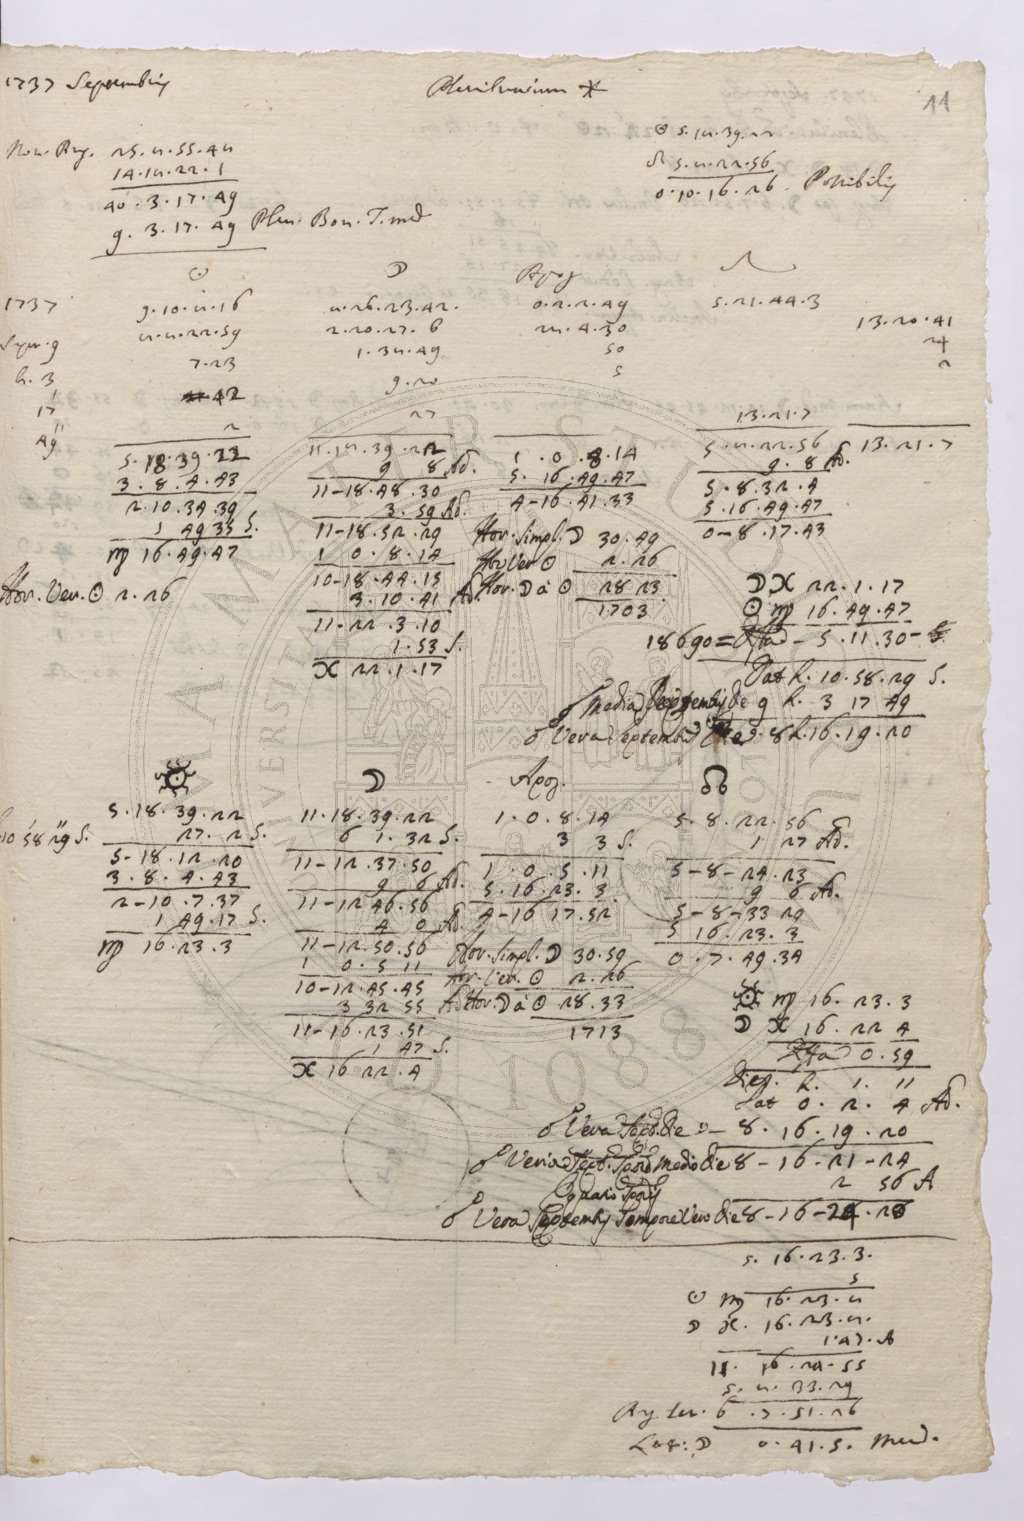 1737 Septembris Plenilunium * 11
Nov. Aug. 25.8.55.48
14.18.22.1
40.3.17.49
9.3.17.49 Plen. Bon. T. med
☉ 5.18.39.22
☊ 5.8.22.56
0.10.16.26. Possibilis
☉ ☽ Apog ☊
1737 9.10.8.16 8.26.23.42. 0.2.2.49 5.21.44.3 13.20.41
Sept. 9 8.8.22.59 2.20.27.6 28.4.30 24
h. 3 7.23 1.38.49 50 2
17 42 9.20 5
49 2 27 13.21.7
5.18.39.22 11.18.39.22 1.0.8.14 5.8.22.56 13.21.7
3.8.4.43 9 8 Ad. 5.16.49.47 9.8 Ad.
2.10.34.39 11-18.48.30 4-16.41.33 5.8.32.4
1 49 35 S. 3.59 Ad. 5.16.49.47
♍ 16.49.47 11-18.52.29 Hor. simpl. ☽ 30.49 0-8.17.43
1 0.8.14 Hor Ver ☉ 2.26
Hor. Ver. ☉ 2.26 10-18.44.15 Hor. ☽ à ☉ 28 23 ☽ ♓ 22.1.17
3.10.41 Ad. 1703 ☉ ♍ 16.49.47
11-22.3.10 18690 = Dffa - 5.11.30
1.53 S. Dat h. 10.58.29 S.
♓ 22.1.17
☍ Media Septembris die 9 h. 3 17 49
☍ Vera Septembris die 8 h. 16.19.20
☉ ☽ Apog. ☊
5.18.39.22 11.18.39.22 1.0.8.14 5.8.22.56
10 58 29 S. 27.2 S. 6 1.32 S. 3 3 S. 1 27 Ad.
5-18.12.20 11-12.37.50 1.0.5.11 5-8-24.23
3.8.4.43 9 6 Ad. 5.16.23.3 9 6 Ad.
2-10.7.37 11-12 46.56 4-16 17.52 5-8-33 29
1 49.17 S. 4 0 Ad. 5 16.23.3
♍ 16.23.3 11-12.50.56 Hor. simpl. ☽ 30.59 0.7.49.34
1 0.5 11 Hor. Ver. ☉ 2.26
10-12.45.45 Hor. ☽ à ☉ 28.33 ☉ ♍ 16.23.3
3 32 55 Ad. 1713 ☽ ♓ 16.22 4
11-16.23.51 Dffa 0.59
1 47 S. h. 1. 11
♓ 16 22.4 Dat 0.2.4 Ad.
☍ Vera Sept. die - 8.16.19.20
☍ Vera Sept. Tempore medio die 8-16-21-24
2 56 A
☍ Vera Septembris Tempore Vero die 8-16-24.20
5.16.23.3.
5
☉ ♍ 16.23.8
☽ ♓. 16.23.8.
1.47. A
11. 16.24-55
5.8.33.29
Arg. lat. 6.7.51.26
Lat: ☽ 0.41.5. Merid.